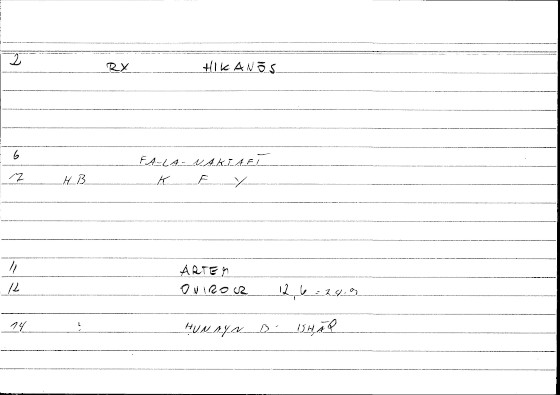 2 RX HIKANŌS
6 FA-LA-NAKTAFĪ
7 HB K F Y
11 ARTEM
12 12,6 = 24.9
14 : ḤUNAYN B. ISḤĀQ